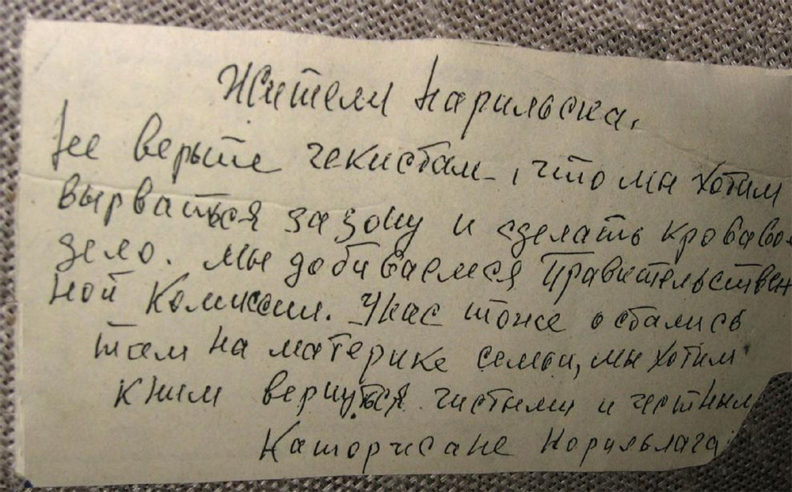 Жители Нарильска,
не верьте чекистам, что мы хотим
вырваться за зону и сделать кроваво
дело. Мы добиваемся Правительствен
ной Комиссии. У нас тоже остались
там на материке семьи, мы хотим
к ним вернуться чистыми и честными
Каторжане Норильлага